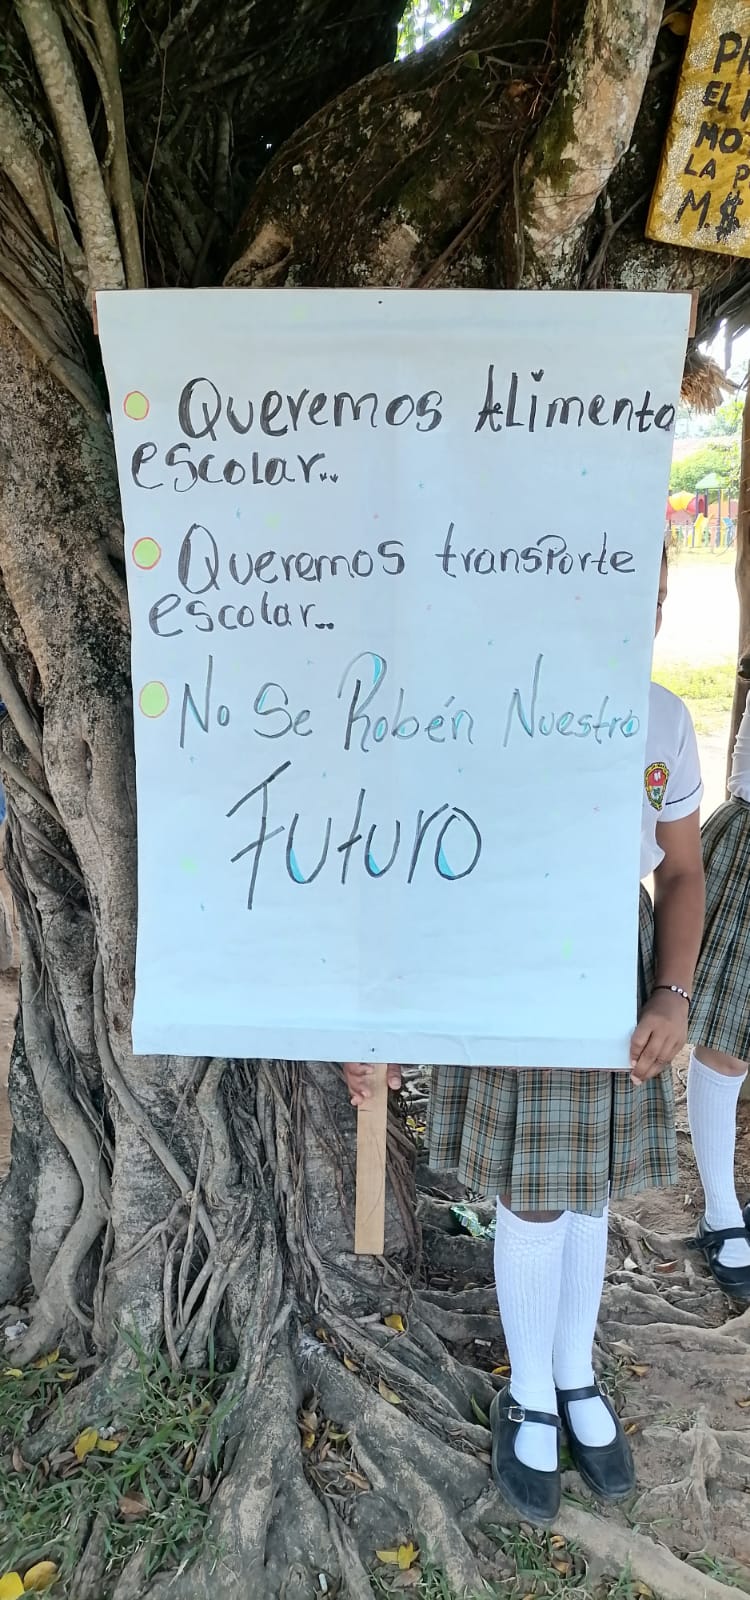 Queremos Alimenta
escolar..
Queremos transporte
escolar..
No Se Robén Nuestro
Futuro
EL
MO
LA P
M.$